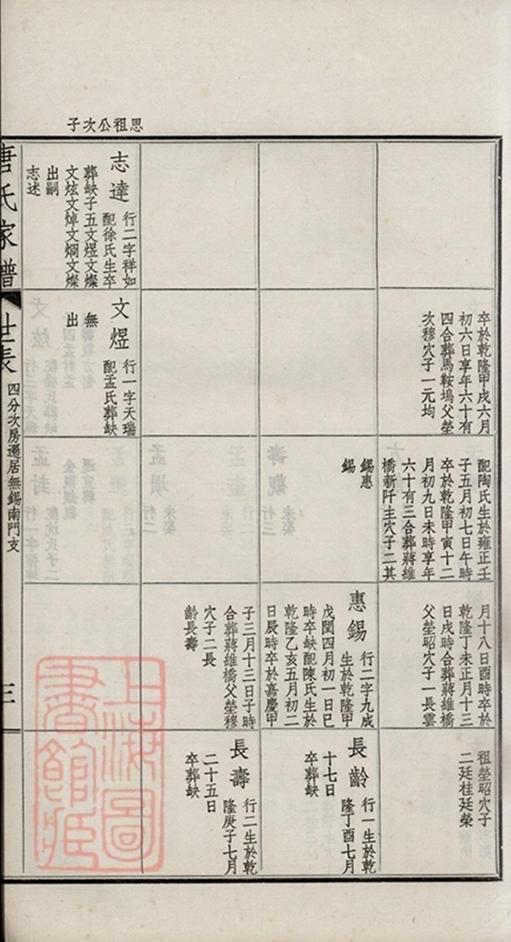 思祖公次子
志達
行二字祥如
配徐氏生卒
葬缺子五文煜文燦
文炫文焯文燜文燦
出嗣
志述
卒於乾隆甲戌六月
初六日享年六十有
四合葬馬鞍塢父塋
次穆穴子一元均
文煜
行一字天瑞
配孟氏葬缺
無
出
配陶氏生於雍正壬
子五月初七日午時
卒於乾隆甲寅十二
月初九日未時享年
六十有三合葬蔣雄
橋新阡主穴子二其
錫惠
錫
月十八日酉時卒於
乾隆丁未正月十三
日戌時合葬蔣雄橋
父塋昭穴子一長雲
惠錫
行二字九成
生於乾隆甲
戌閏四月初一日巳
時卒缺配陳氏生於
乾隆乙亥五月初二
日辰時卒於嘉慶甲
子三月十三日子時
合葬蔣雄橋父塋穆
穴子二長
齡長壽
祖塋昭穴子
二廷桂廷榮
長齡
行一生於乾
隆丁酉七月
十七日
卒葬缺
長壽
行二生於乾
隆庚子七月
二十五日
卒葬缺
唐氏家譜
世表
四分次房遷居無錫南門支
三
上海圖
書館藏